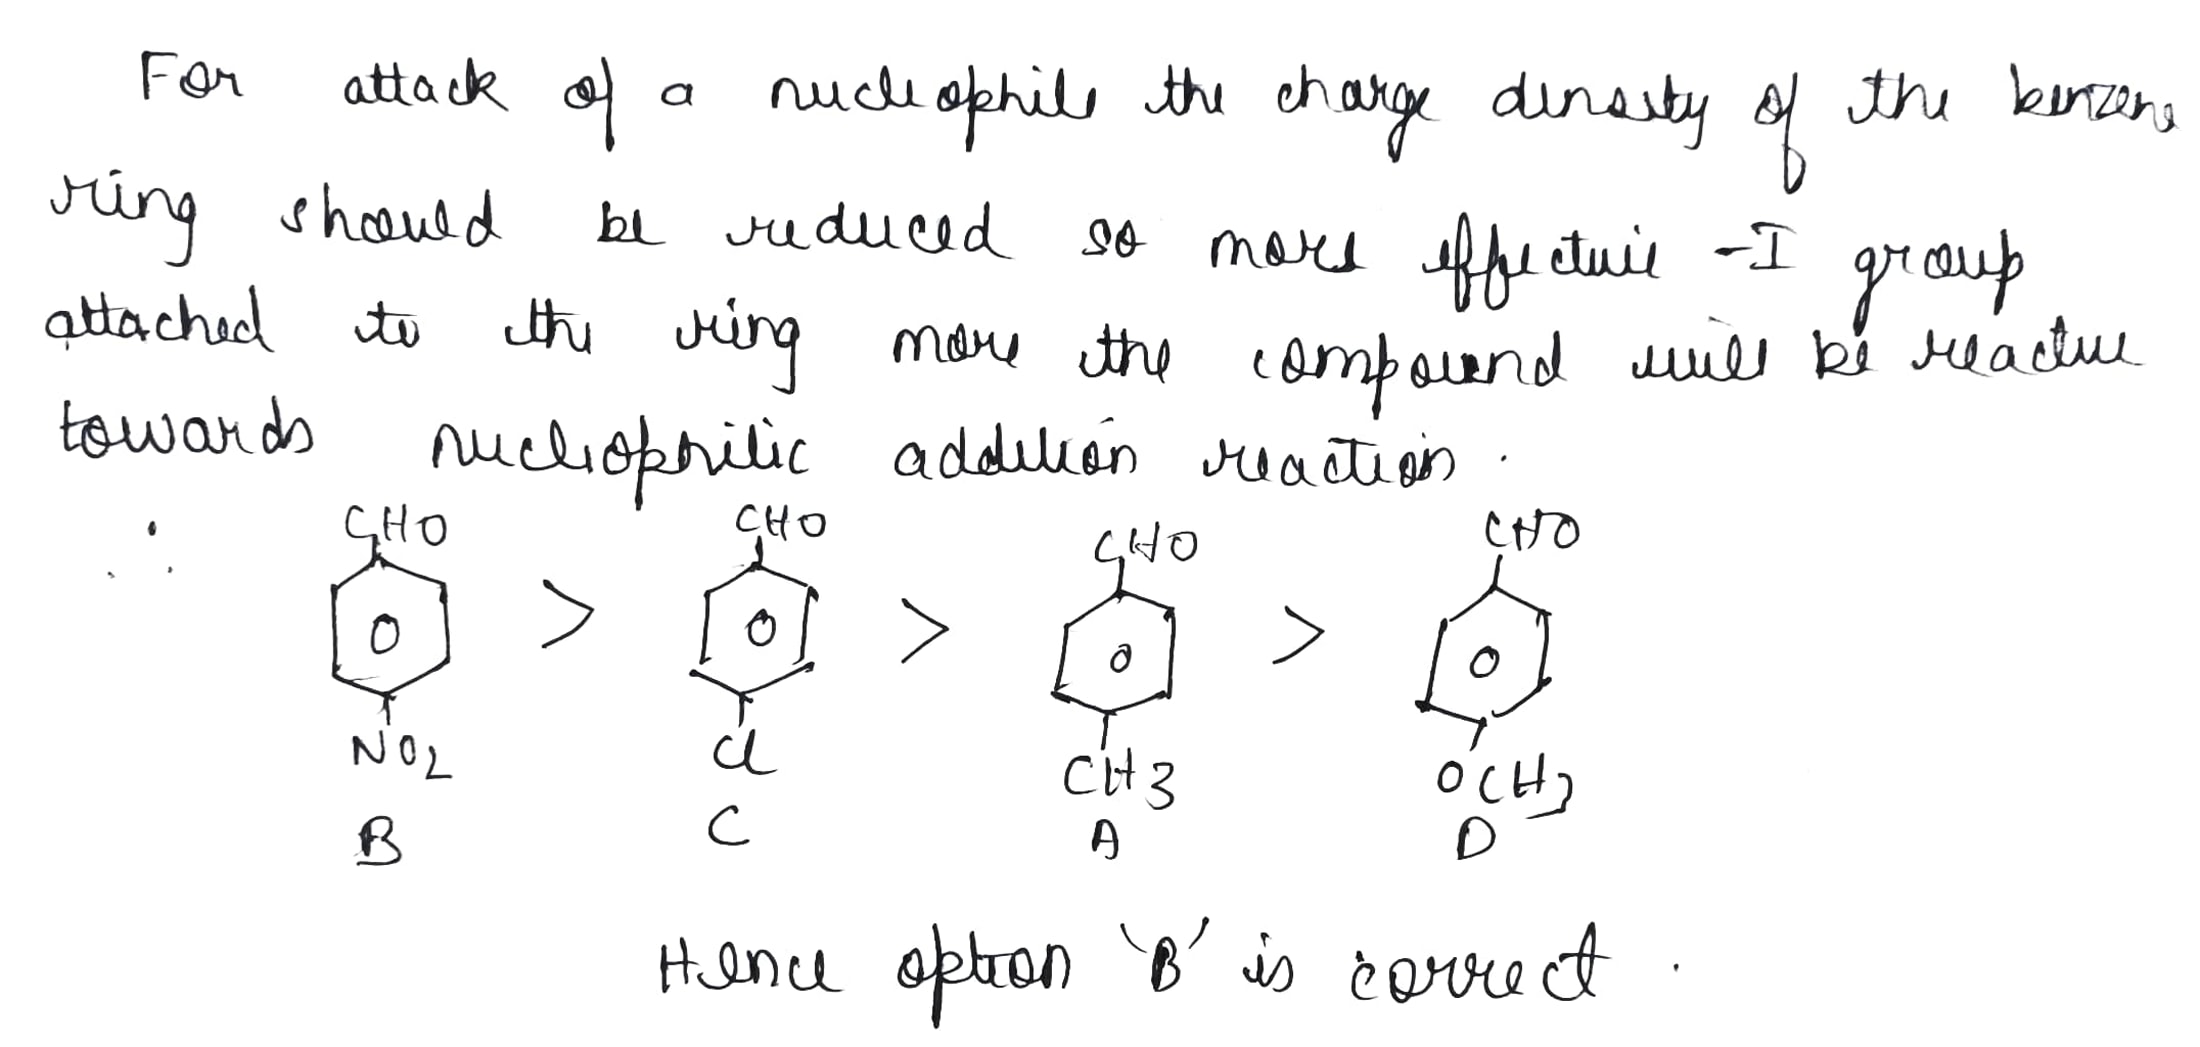 For attack of a nucleophile the charge density of the benzene
ring should be reduced so more effective -I group
attached to the ring more the compound will be reactive
towards nucleophilic addition reaction.
∴ CHO > CHO > CHO > CHO
NO2 Cl CH3 OCH3
B C A D
Hence option 'B' is correct.